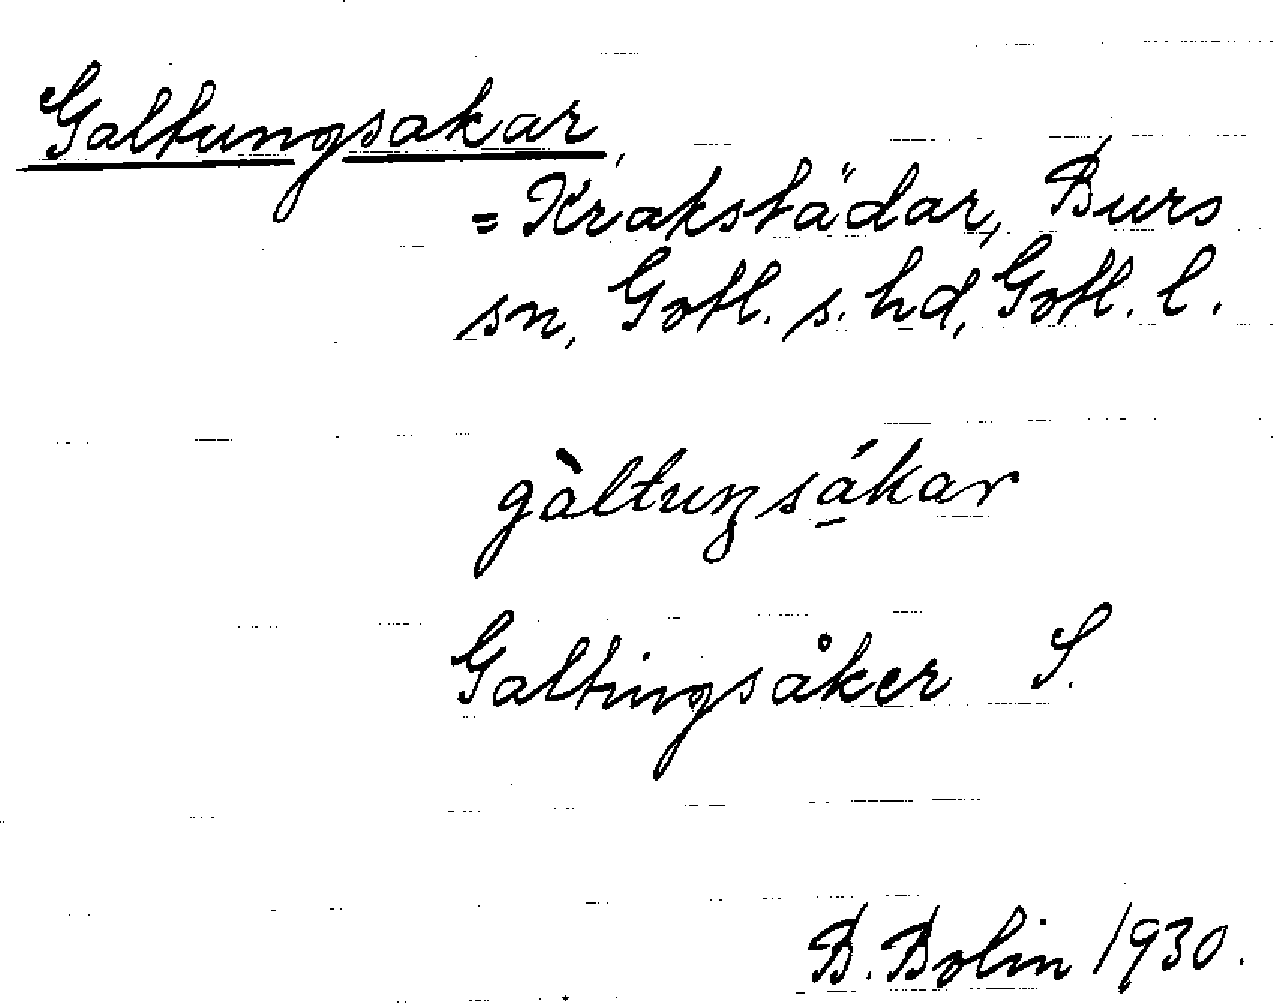 Galtungsakar,
= Krakstädar, Burs
sn, Gotl. s. hd, Gotl. l.
gàltuŋsá̱kar
Galtingsåker S.
B. Bolin 1930.